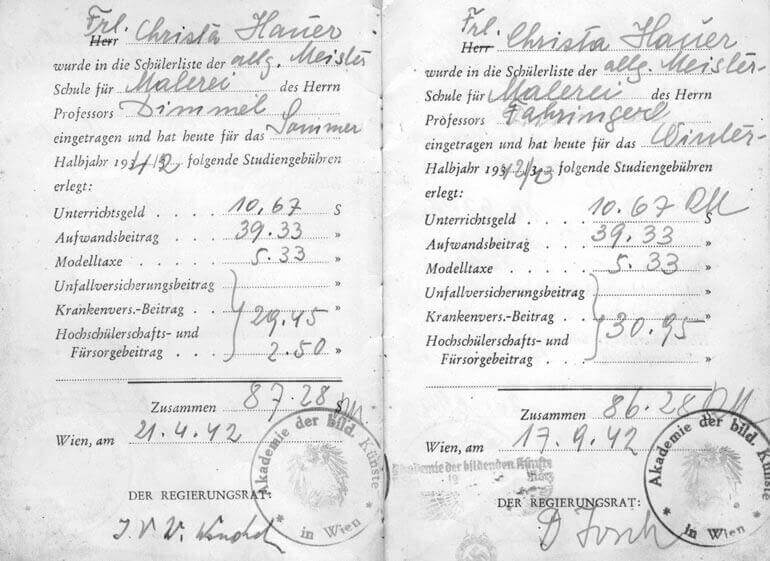 Frl.
Herr Christa Hauer
wurde in die Schülerliste der allg. Meister
Schule für Malerei des Herrn
Professors Dimmel
eingetragen und hat heute für das Sommer
Halbjahr 1942 folgende Studiengebühren
erlegt:
Unterrichtsgeld . . . . 10.67 S
Aufwandsbeitrag . . . . 39.33 »
Modelltaxe . . . . . 5.33 »
Unfallversicherungsbeitrag »
Krankenvers.-Beitrag . . . 29.45 »
Hochschülerschafts- und
Fürsorgebeitrag . . . 2.50 »
Zusammen 87.28 S
Wien, am 21.4.42
DER REGIERUNGSRAT:
Akademie der bild. Künste
* in Wien *
Frl.
Herr Christa Hauer
wurde in die Schülerliste der allg. Meister-
Schule für Malerei des Herrn
Professors Fahringer
eingetragen und hat heute für das Winter-
Halbjahr 1942/3 folgende Studiengebühren
erlegt:
Unterrichtsgeld . . . . 10.67 RM S
Aufwandsbeitrag . . . . 39.33 »
Modelltaxe . . . . . 5.33 »
Unfallversicherungsbeitrag »
Krankenvers.-Beitrag . . . »
Hochschülerschafts- und 30.95
Fürsorgebeitrag . . . »
Zusammen 86.28 RM
Wien, am 17.9.42
Akademie der bildenden Künste
DER REGIERUNGSRAT:
Akademie der bild. Künste
* in Wien *